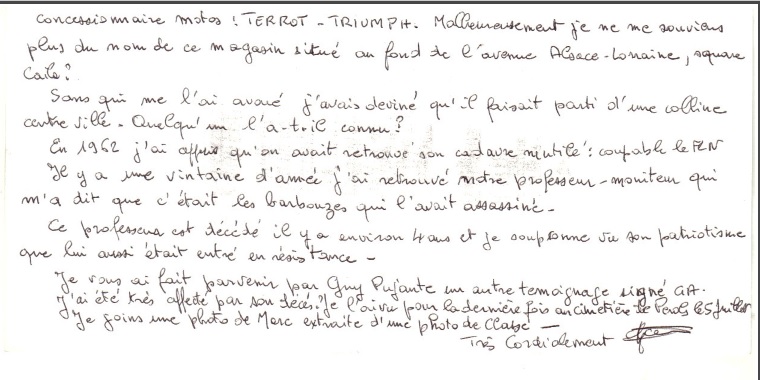 concessionnaire motos : TERROT - TRIUMPH. Malheureusement je ne me souviens
plus du nom de ce magasin situé au fond de l'avenue Alsace-Lorraine, square
Cail ?
Sans qui me l'ai avoué j'avais deviné qu'il faisait parti d'une colline
centre ville - Quelqu'un l'a-t-il connu ?
En 1962 j'ai appris qu'on avait retrouvé son cadavre mutilé : coupable le FLN
Il y a une vintaine d'année j'ai retrouvé notre professeur-moniteur qui
m'a dit que c'était les barbouzes qui l'avait assassiné -
Ce professeur est décédé il y a environ 4 ans et je soupçonne vu son patriotisme
que lui aussi était entré en résistance -
Je vous ai fait parvenir par Guy Pujante un autre temoignage signé GA.
J'ai été très affecté par son décés. Je l'ai vu pour la dernière fois au cimetière de Perols le 5 Juillet
Je joins une photo de Marc extraite d'une photo de Classe -
Très Cordialement